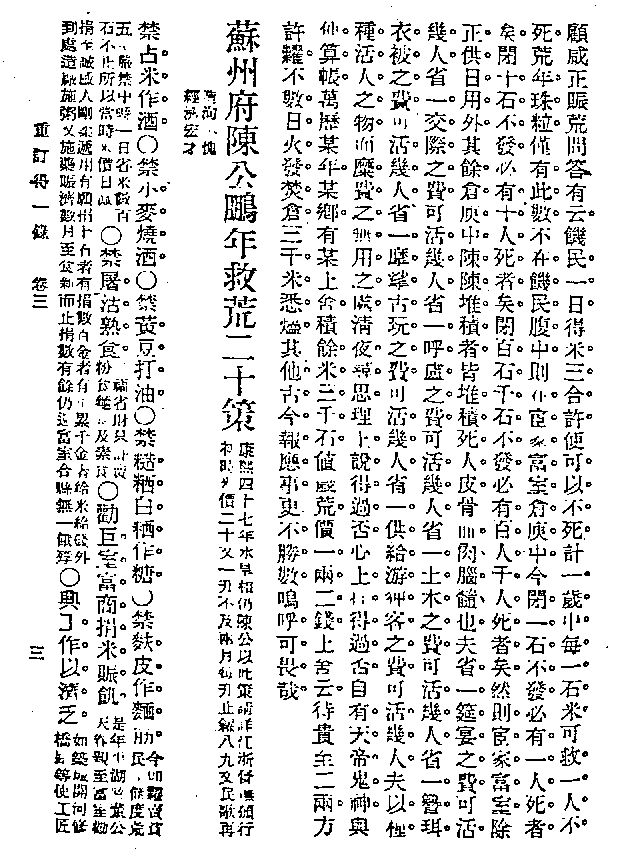 顧咸正賑荒問答有云饑民一日得米三合許便可以不死計一歲中每一石米可救一人不
死荒年珠粒僅有此數不在饑民腹中則在宦家富室倉庾中今閉一石不發必有一人死者
矣閉十石不發必有十人死者矣閉百石千石不發必有百人千人死者矣然則宦家富室除
正供日用外其餘倉庾中陳陳堆積者皆堆積死人皮骨血肉腦髓也夫省一筵宴之費可活
幾人省一交際之費可活幾人省一呼盧之費可活幾人省一土木之費可活幾人省一簪珥
衣被之費可活幾人省一摩挲古玩之費可活幾人省一供給游客之費可活幾人夫以種
種活人之物而糜費之無用之處清夜尋思理上說得過否心上行得過否自有天帝鬼神與
他算帳萬歷某年某鄉有某上舍積餘米三千石值歲荒價一兩二錢上舍云待貴至二兩方
許糶不數日火發焚倉三千米悉燼其他古今報應事更不勝數嗚呼可畏哉
蘇州府陳公鵬年救荒二十策
康熙四十七年水旱 仍陳公以此策請詳江浙 頒行
初時米價二十文一升不及兩月每升止錢八九文民歌再
經濟宏才
禁占米作酒〇禁小麥燒酒〇禁黃豆打油〇禁糙粞白粞作糖〇禁麩皮作麵
五 嚴禁中時一日省米數百
石不止所以當時米價日減〇禁屠沽熟食〇勸巨室富商捐米賑飢
是年平湖 葉公
天 親至富室勸
捐 有捐數百金者有 累千金者給米給錢外
到處設廠施粥又施藥賑濟數月至食新而止捐數有餘仍還富室合縣無一餓殍〇興工作以濟乏
如築城開河修
橋 等使工匠
重訂得一錄 卷三
三